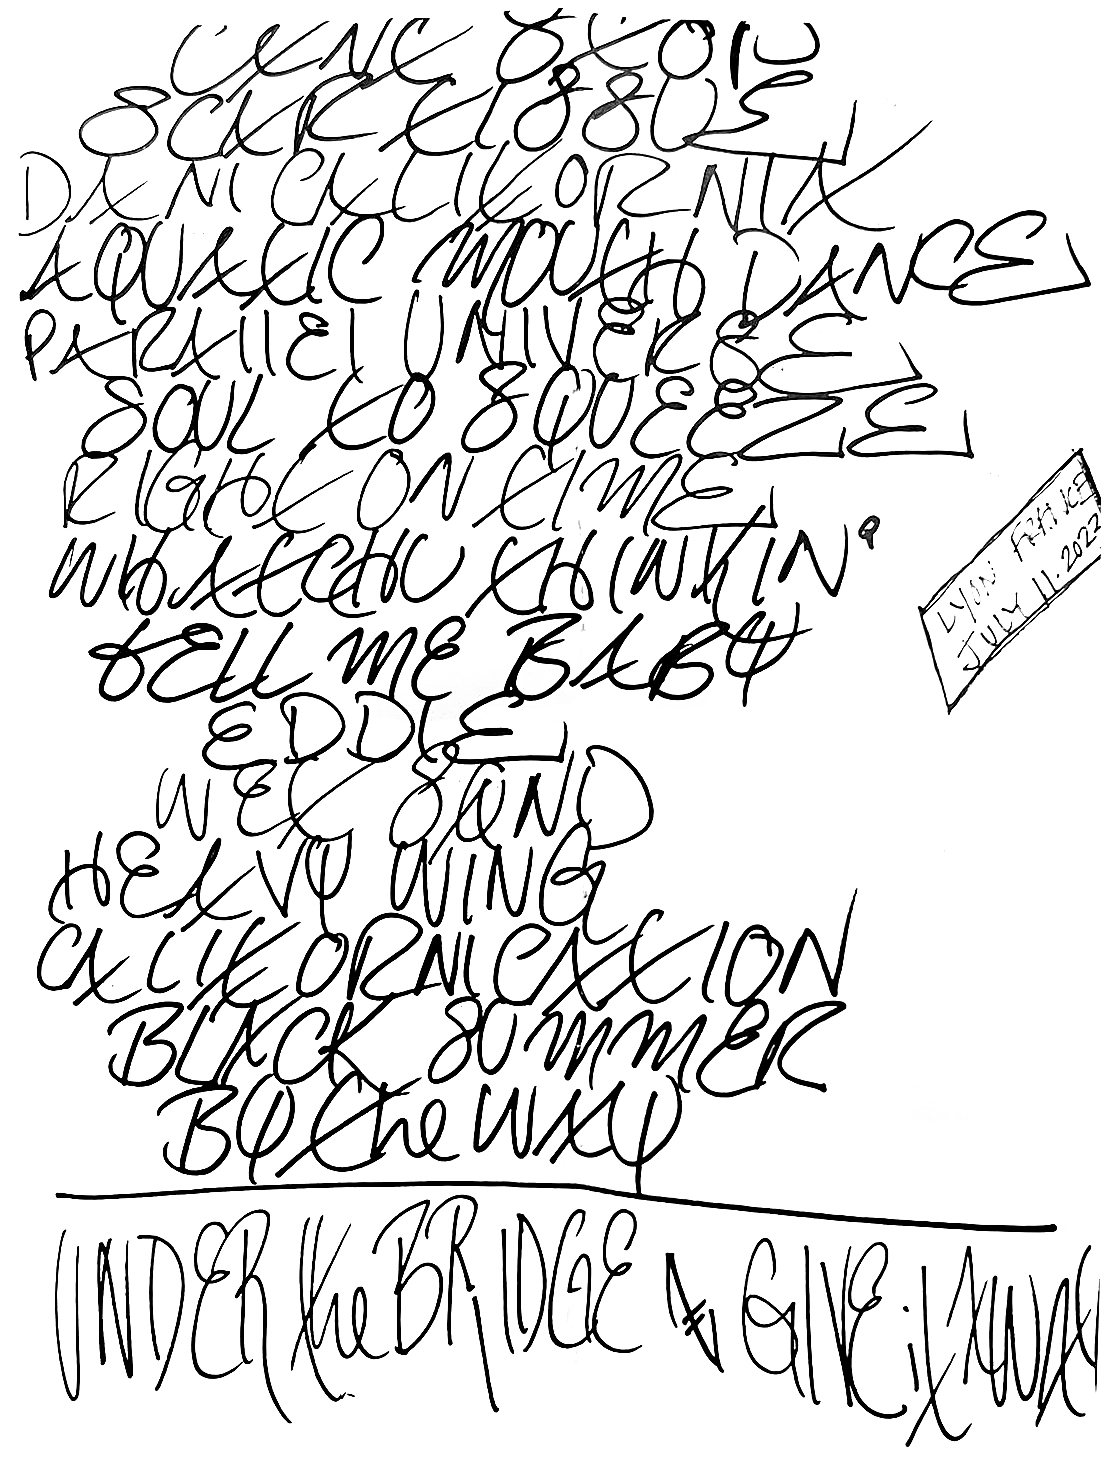 CANT STOP
SCAR TISSUE
DANI CALIFORNIA
AQUATIC MOUTH DANCE
PARALLEL UNIVERSE
SOUL TO SQUEEZE
RIGHT ON TIME
WHATCHU THINKIN'
TELL ME BABY
EDDIE
WET SAND
HEAVY WING
CALIFORNICATION
BLACK SUMMER
BY the WAY
UNDER the BRIDGE & GIVE iT AWAY
LYON FRANCE
JULY 11. 2023